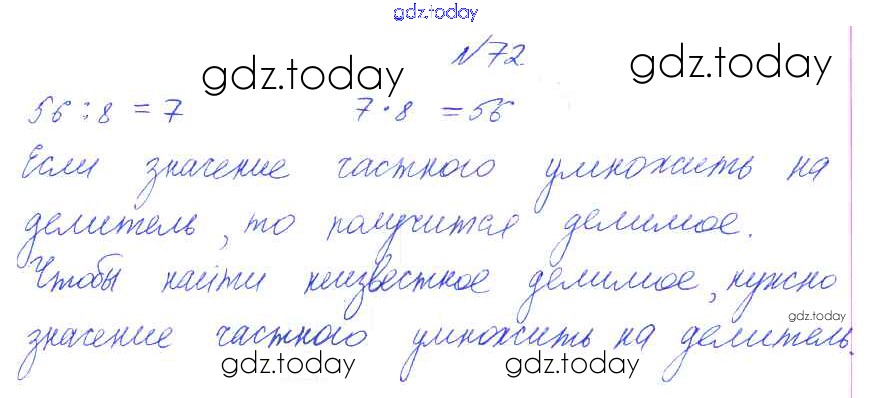 gdz.today
№72
gdz.today gdz.today
56:8=7 7·8=56
Если значение частного умножить на
делитель, то получится делимое.
Чтобы найти неизвестное делимое, нужно
gdz.today
значение частного умножить на делитель.
gdz.today gdz.today